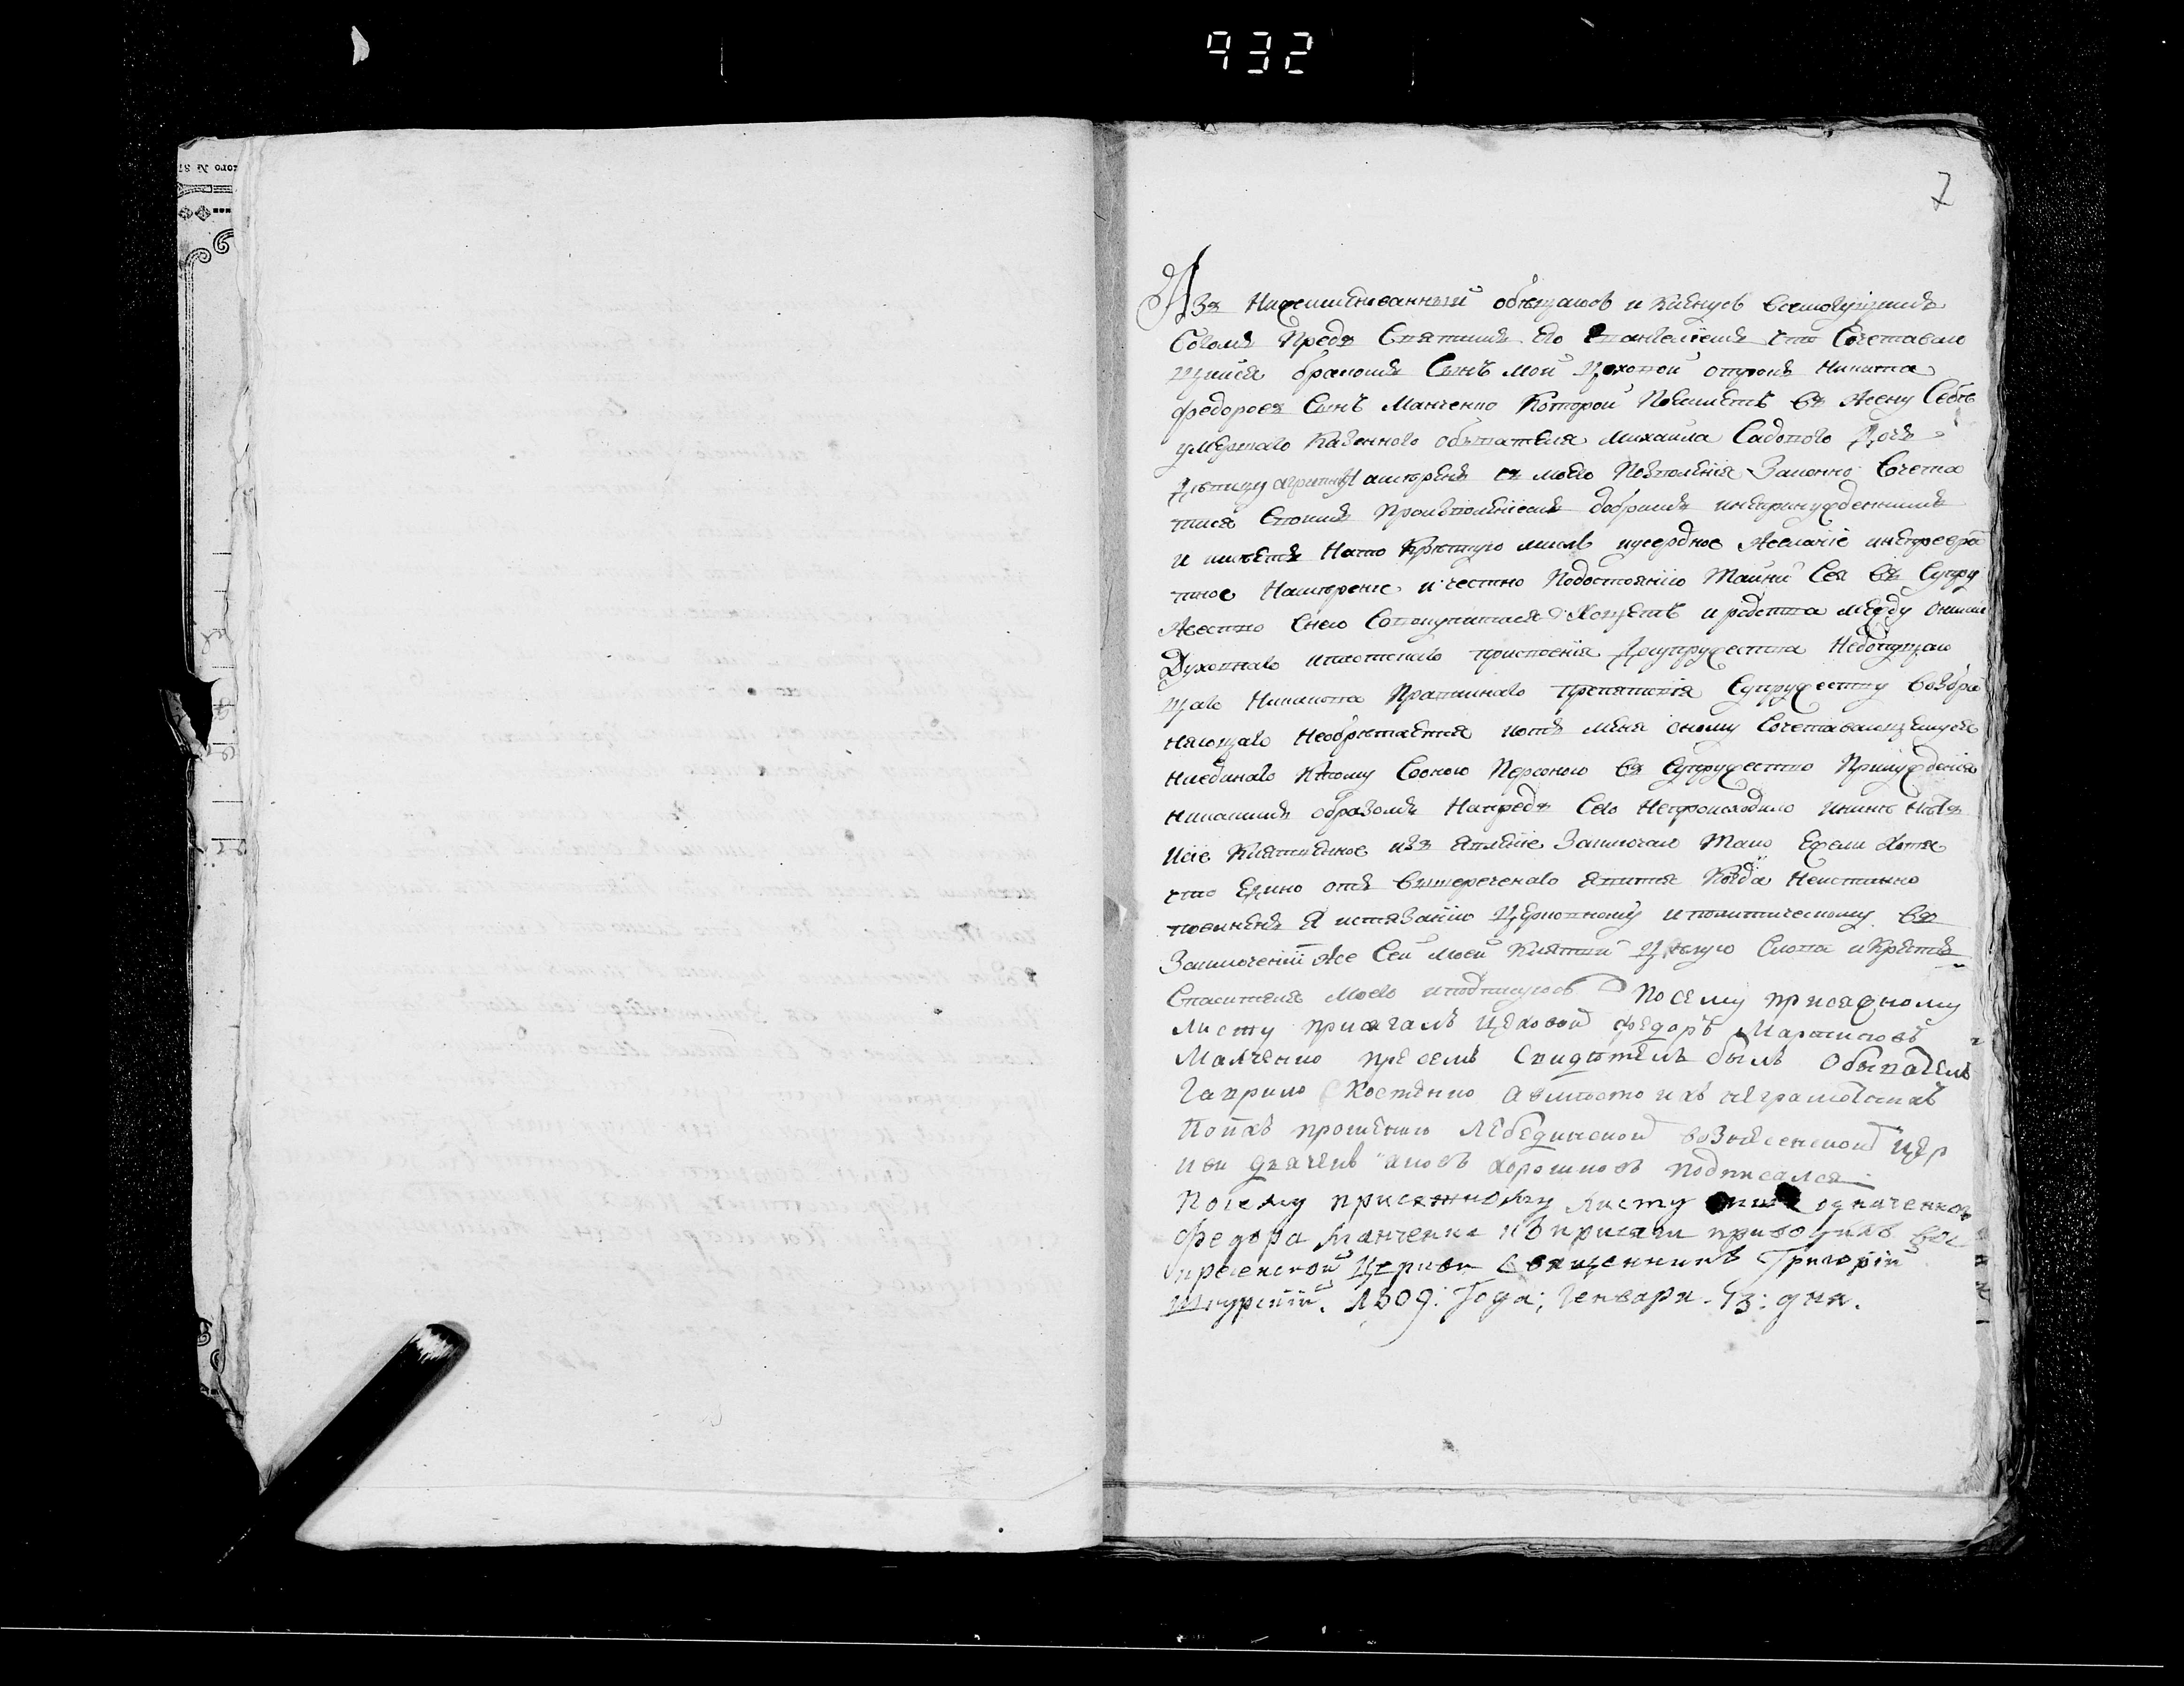 932
7
Азъ Нижеименованный обѣщаюсь и кленусь всемогущимъ
Богомъ Предъ Святымъ Его Евангелиемъ что Сочетаваю
щийся бракомъ Сынъ мой Цеховой отрокъ Никита
Федоровъ Сынъ Манченко Который Поемлетъ въ Жену Себѣ
умершаго Казенного обывателя Михаила Садового Дочь
дѣвицу агрипину намѣренъ съ моего Позволенія Законно Сочета
тися Своимъ Произволениемъ добрымъ инепринужденнымъ
и имѣетъ Нато Крѣпкую мысль иусердное Желаніе инепревра
тное Намѣрение и честно Подостоянію Тайны Сея въ Супру
жество Снею Совокупитися Хощетъ и родства между оними
Духовнаго иплотскаго присвоенія Двупружества Недопущаю
щаго Никакова Правилнаго препятствія Супружеству возбра
няющаго Необрѣтается иотъ меня оному Сочетавающемуся
ниединаго Ктому Сооною Персоною въ Супружество Принужденія
никакимъ образомъ Напредъ Сего Непроисходило инынѣ нѣтъ
исіе Клятвенное изъявленіе Заключаю Тако Ежели Хотя
что Едино отъ вышереченаго явится Когда Неистинно
повиненъ Я истязанію Церковному иполитическому въ
Заключеніи Же Сей моей Клятви Цѣлую Слова иКрестъ
Спасителя Моего иподпишуюсь Посему присяжному
листу присягалъ Цеховой Федоръ Мартиновъ
Малченко при семъ Свидѣтель былъ Обыватель
Гаврило Костенко авместо ихъ неграмотнихъ
Поихъ прошению Лебединской вознесенской Цер
кви дячекъ яковъ хорошковъ подписался
Посему присяжному листу означенного
Федора Манченка къ присяги приводилъ Вос
кресенской Церкви Священникъ Григорій
1809: Года; Генваря 13: дня.